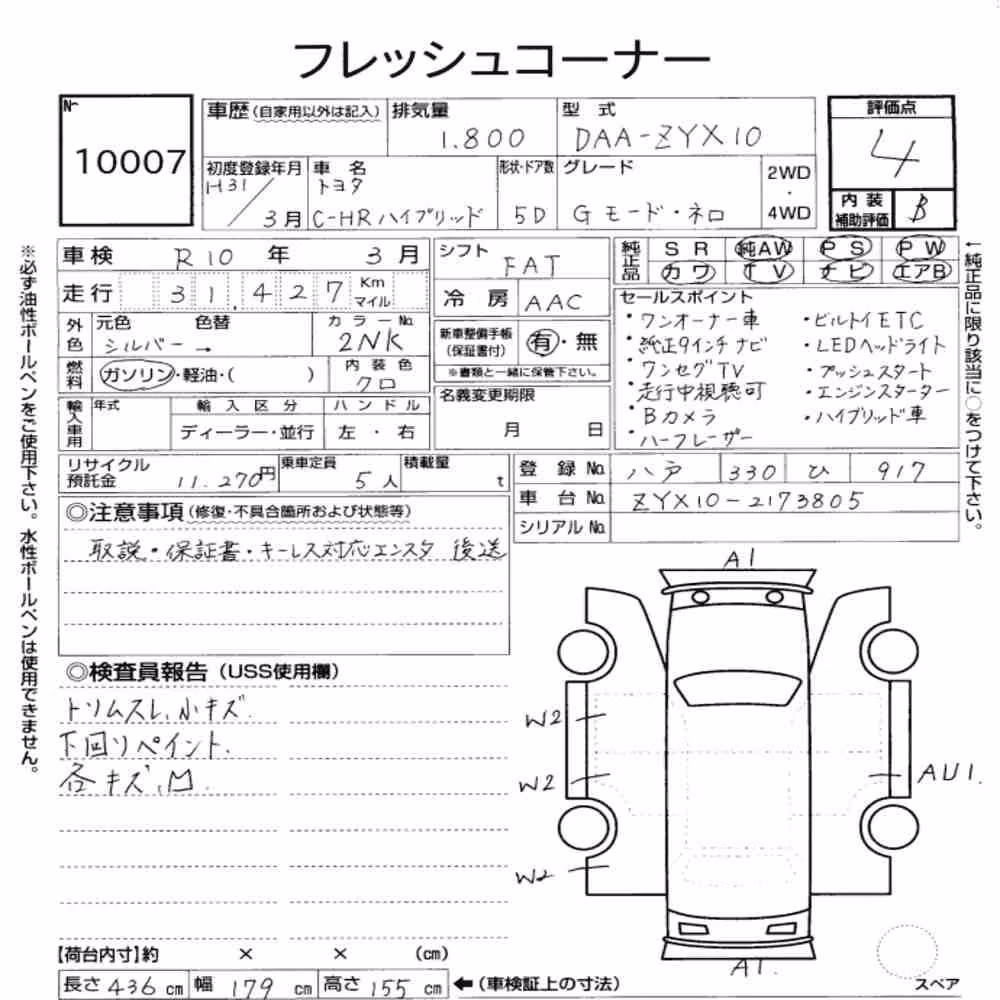 フレッシュコーナー
№ 10007
車歴(自家用以外は記入) 排気量 1.800 型式 DAA-ZYX10
評価点 4
内装補助評価 B
初度登録年月 H31/3月 車名 トヨタ C-HRハイブリッド 形状・ドア数 5D グレード Gモード・ネロ 2WD・4WD
※必ず油性ボールペンをご使用下さい。水性ボールペンは使用できません。
←純正品に限り該当に○をつけて下さい。
車検 R10年 3月
走行 31,427 Km マイル
外色 元色 シルバー→ 色替 カラーNo. 2NK
燃料 ガソリン・軽油・( ) 内装色 クロ
輸入車用 年式 輸入区分 ディーラー・並行 ハンドル 左・右
シフト FAT
冷房 AAC
新車整備手帳(保証書付) 有・無
※書類と一緒に保管下さい。
名義変更期限 月 日
純正品 SR 純AW PS PW
カワ TV ナビ エアB
セールスポイント
・ワンオーナー車 ・ビルトイETC
・純正9インチナビ ・LEDヘッドライト
ワンセグTV ・プッシュスタート
走行中視聴可 ・エンジンスターター
・Bカメラ ・ハイブリッド車
・ハーフレーザー
リサイクル預託金 11.270円 乗車定員 5人 積載量 t
登録No. 八戸 330 ひ 917
車台No. ZYX10-2173805
シリアルNo.
◎注意事項(修復・不具合箇所および状態等)
取説・保証書・キーレス対応エンスタ 後送
◎検査員報告(USS使用欄)
トリムスレ,小キズ.
下回リペイント.
各キズ,凹
A1
W2
W2
AU1.
W2
A1.
スペア
【荷台内寸】約 × × (cm)
長さ 436 cm 幅 179 cm 高さ 155 cm ←(車検証上の寸法)